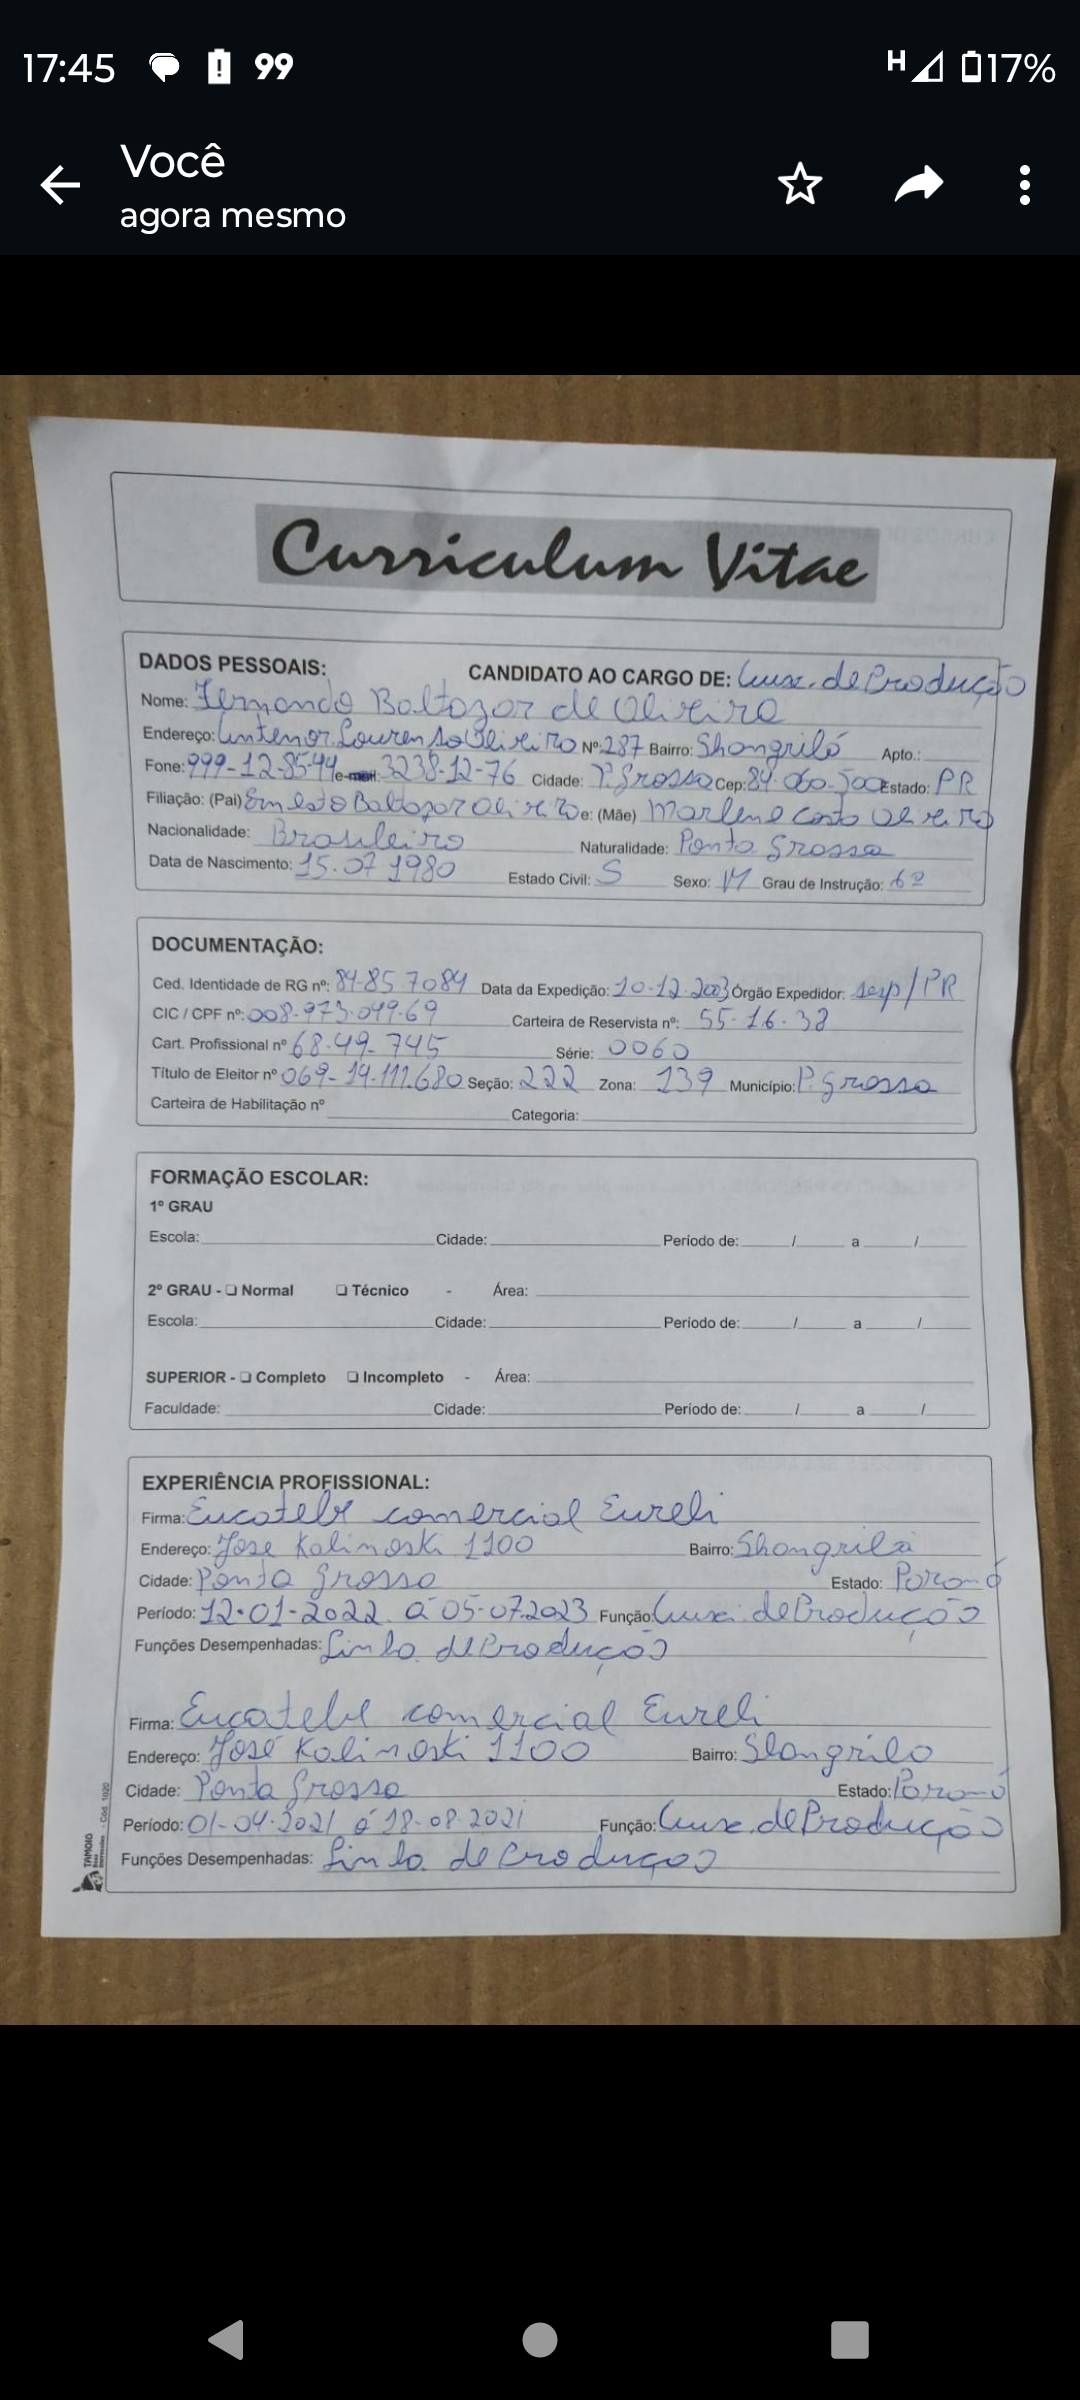 17:45 99 H 17%
Você
agora mesmo
Curriculum Vitae
DADOS PESSOAIS: CANDIDATO AO CARGO DE: Auxi. de Produção
Nome: Fernando Baltazar de Oliveira
Endereço: Antenor Lourenso Oliveira Nº: 287 Bairro: Shangrilá Apto.:
Fone: 999-12-85-44 e-mail: 3238-12-76 Cidade: P. Grossa Cep: 84.060-500 Estado: PR
Filiação: (Pai) Ernesto Baltazar Oliveira e: (Mãe) Marlene Costa Oliveira
Nacionalidade: Brasileiro Naturalidade: Ponta Grossa
Data de Nascimento: 15.07 1980 Estado Civil: S Sexo: M Grau de Instrução: 6º
DOCUMENTAÇÃO:
Ced. Identidade de RG nº: 84-85 7084 Data da Expedição: 10-12-2003 Órgão Expedidor: sesp/PR
CIC / CPF nº: 008-973-049-69 Carteira de Reservista nº: 55-16-38
Cart. Profissional nº 68-49-745 Série: 0060
Título de Eleitor nº 069-14-111.680 Seção: 222 Zona: 139 Município: P. Grossa
Carteira de Habilitação nº Categoria:
FORMAÇÃO ESCOLAR:
1º GRAU
Escola: Cidade: Período de: / a /
2º GRAU - Normal Técnico - Área:
Escola: Cidade: Período de: / a /
SUPERIOR - Completo Incompleto - Área:
Faculdade: Cidade: Período de: / a /
EXPERIÊNCIA PROFISSIONAL:
Firma: Eucatele comercial Eureli
Endereço: Jose Kalinoski 1100 Bairro: Shangrila
Cidade: Ponta Grossa Estado: Paraná
Período: 12-01-2022 á 05-07.2023 Função: Auxi. de Produção
Funções Desempenhadas: Linha de Produção
Firma: Eucatele comercial Eureli
Endereço: José Kalinoski 1100 Bairro: Shangrila
Cidade: Ponta Grossa Estado: Paraná
Período: 01-04-2021 á 18-08-2021 Função: Auxi. de Produção
Funções Desempenhadas: Linha de Produção
TAMOIO
Cód. 1020